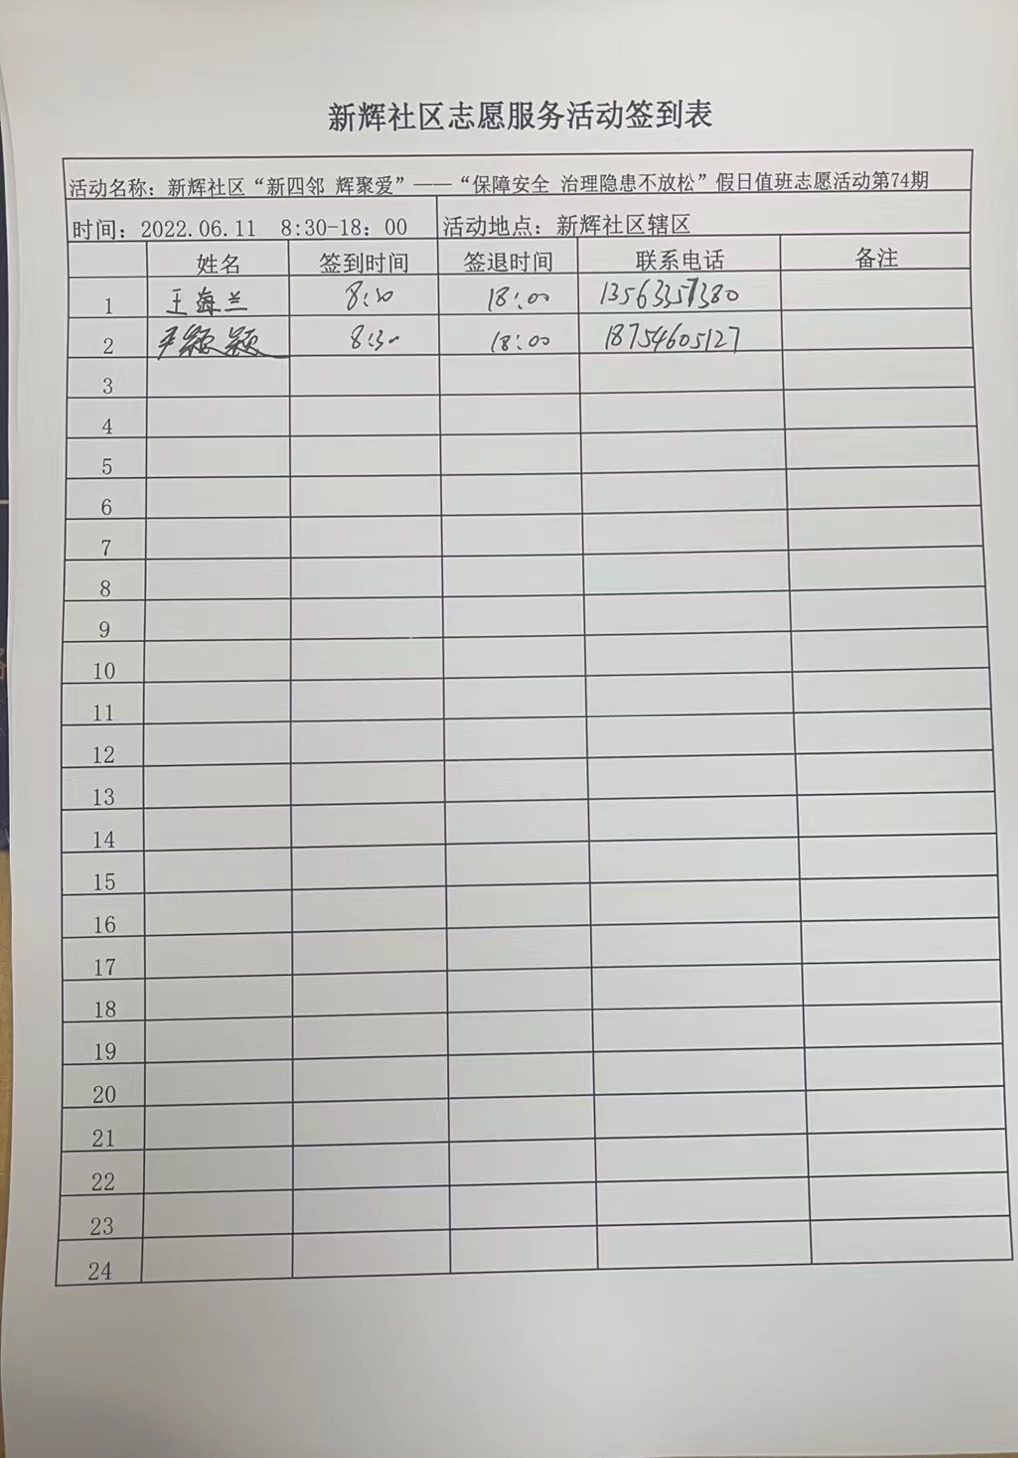 新辉社区志愿服务活动签到表
活动名称：新辉社区“新四邻 辉聚爱”——“保障安全 治理隐患不放松”假日值班志愿活动第74期
时间：2022.06.11 8:30-18：00 活动地点：新辉社区辖区
姓名 签到时间 签退时间 联系电话 备注
1 王海兰 8:30 18:00 13563357380
2 尹颖颖 8:30 18:00 18754605127
3
4
5
6
7
8
9
10
11
12
13
14
15
16
17
18
19
20
21
22
23
24